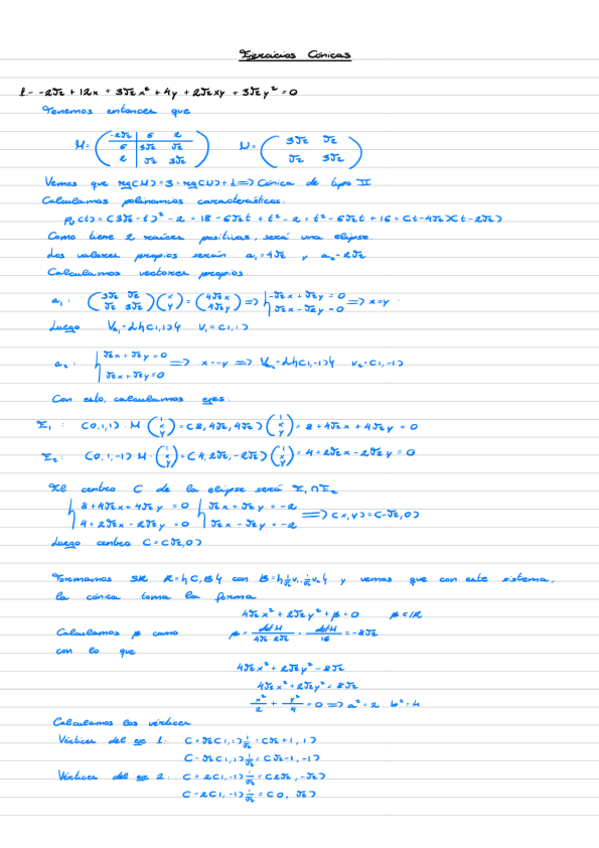 Ejercicios Cónicas
1- -2√2 + 12x + 3√2x² + 4y + 2√2xy + 3√2y² = 0
Tenemos entonces que
M = ( -2√2 6 2 ; 6 3√2 √2 ; 2 √2 3√2 ) N = ( 3√2 √2 ; √2 3√2 )
Vemos que rg(M) = 3 = rg(N) + 1 => Cónica de tipo II
Calculamos polinomios característicos.
P(t) = (3√2 - t)² - 2 = 18 - 6√2t + t² - 2 = t² - 6√2t + 16 = (t - 4√2)(t - 2√2)
Como tiene 2 raíces positivas, será una elipse.
Los valores propios serán a₁ = 4√2 y a₂ = 2√2
Calculamos vectores propios.
a₁: ( 3√2 √2 ; √2 3√2 ) ( x ; y ) = ( 4√2x ; 4√2y ) => { -√2x + √2y = 0 ; √2x - √2y = 0 => x = y
Luego Va₁ = L{(1,1)} v₁ = (1,1)
a₂: { √2x + √2y = 0 ; √2x + √2y = 0 => x = -y => Va₂ = L{(1,-1)} v₂ = (1,-1)
Con esto, calculamos ejes:
E₁: (0,1,1) · M ( 1 ; x ; y ) = (8, 4√2, 4√2) ( 1 ; x ; y ) = 8 + 4√2x + 4√2y = 0
E₂: (0,1,-1) M · ( 1 ; x ; y ) = (4, 2√2, -2√2) ( 1 ; x ; y ) = 4 + 2√2x - 2√2y = 0
El centro C de la elipse será E₁ ∩ E₂
{ 8 + 4√2x + 4√2y = 0 ; 4 + 2√2x - 2√2y = 0 { √2x + √2y = -2 ; √2x - √2y = -2 => (x,y) = (-√2,0)
Luego centro C = (√2,0)
Tomamos SR R = {C, B} con B = {1/√2 v₁, 1/√2 v₂} y vemos que con este sistema,
la cónica toma la forma
4√2x² + 2√2y² + β = 0 β ∈ ℝ
Calculamos β como β = det M / 4√2·2√2 = det M / 16 = -8√2
con lo que
4√2x² + 2√2y² - 8√2
4√2x² + 2√2y² = 8√2
x²/2 + y²/4 = 0 => a² = 2 b² = 4
Calculamos los vértices
Vértices del eje 1: C + √2(1,1) 1/√2 = (√2 + 1, 1)
C - √2(1,1) 1/√2 = (√2 - 1, -1)
Vértices del eje 2: C + 2(1,-1) 1/√2 = (2√2, -√2)
C - 2(1,-1) 1/√2 = (0, √2)